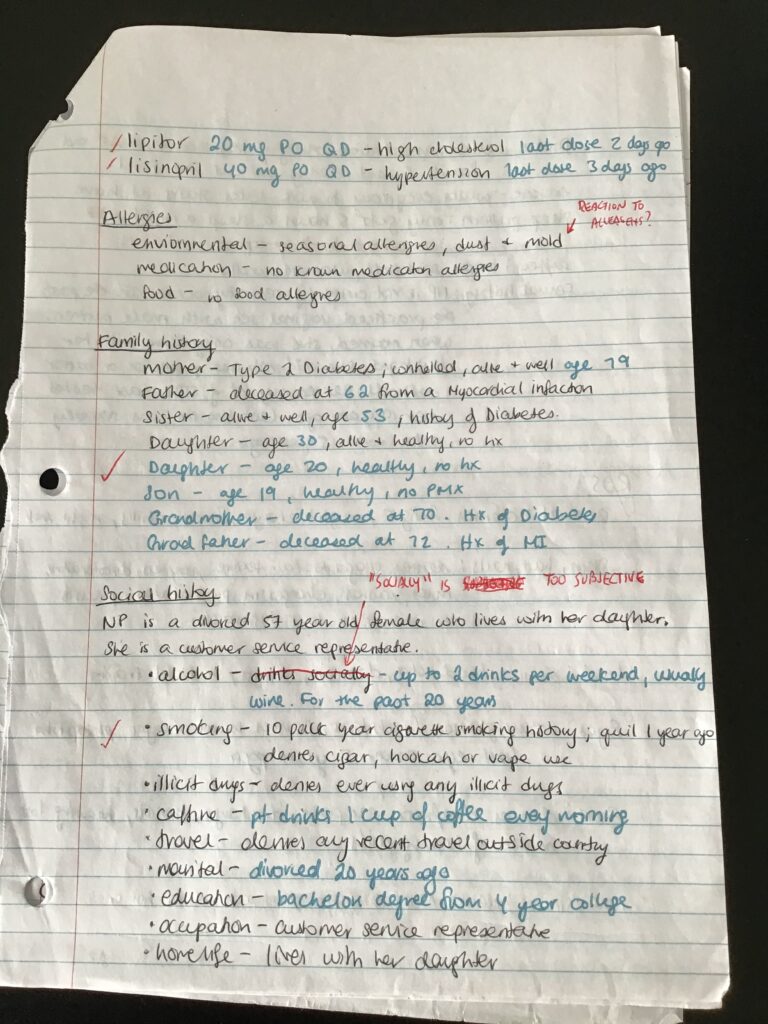 lipitor 20 mg PO QD - high cholesterol last dose 2 days ago
lisinopril 40 mg PO QD - hypertension last dose 3 days ago
REACTION TO
ALLERGENS?
Allergies
enviornmental - seasonal allergies, dust + mold
medication - no known medication allergies
food - no food allergies
Family history
mother - Type 2 Diabetes; controlled, alive + well age 79
Father - deceased at 62 from a Myocardial infaction
Sister - alive + well, age 53, history of Diabetes.
Daughter - age 30, alive + healthy, no hx
Daughter - age 20, healthy, no hx
Son - age 19, healthy, no PMX
Grandmother - deceased at 70. Hx of Diabetes
Grandfather - deceased at 72. Hx of MI
"SOCIALLY" IS TOO SUBJECTIVE
Social history
NP is a divorced 57 year old female who lives with her daughter.
She is a customer service representative.
• alcohol - drinks socially - up to 2 drinks per weekend, usually
wine. For the past 20 years
• smoking - 10 pack year cigarette smoking history; quit 1 year ago
denies cigar, hookah or vape use
• illicit drugs - denies ever using any illicit drugs
• caffine - pt drinks 1 cup of coffee every morning
• travel - denies any recent travel outside country
• marital - divorced 20 years ago
• education - bachelors degree from 4 year college
• occupation - customer service representative
• homelife - lives with her daughter